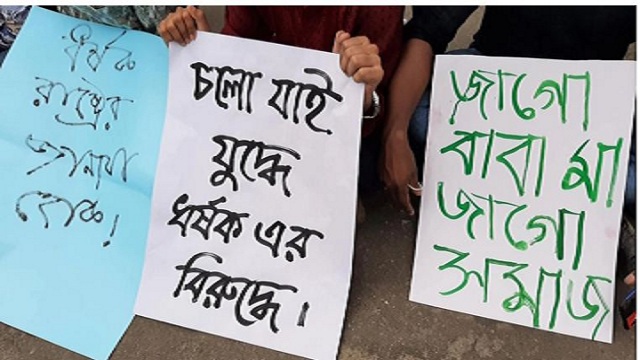 ধর্ষক
রাষ্ট্রের
জানাযা
হোক।
চলো যাই
যুদ্ধে
ধর্ষক এর
বিরুদ্ধে।
জাগো
বাবা মা
জাগো
সমাজ